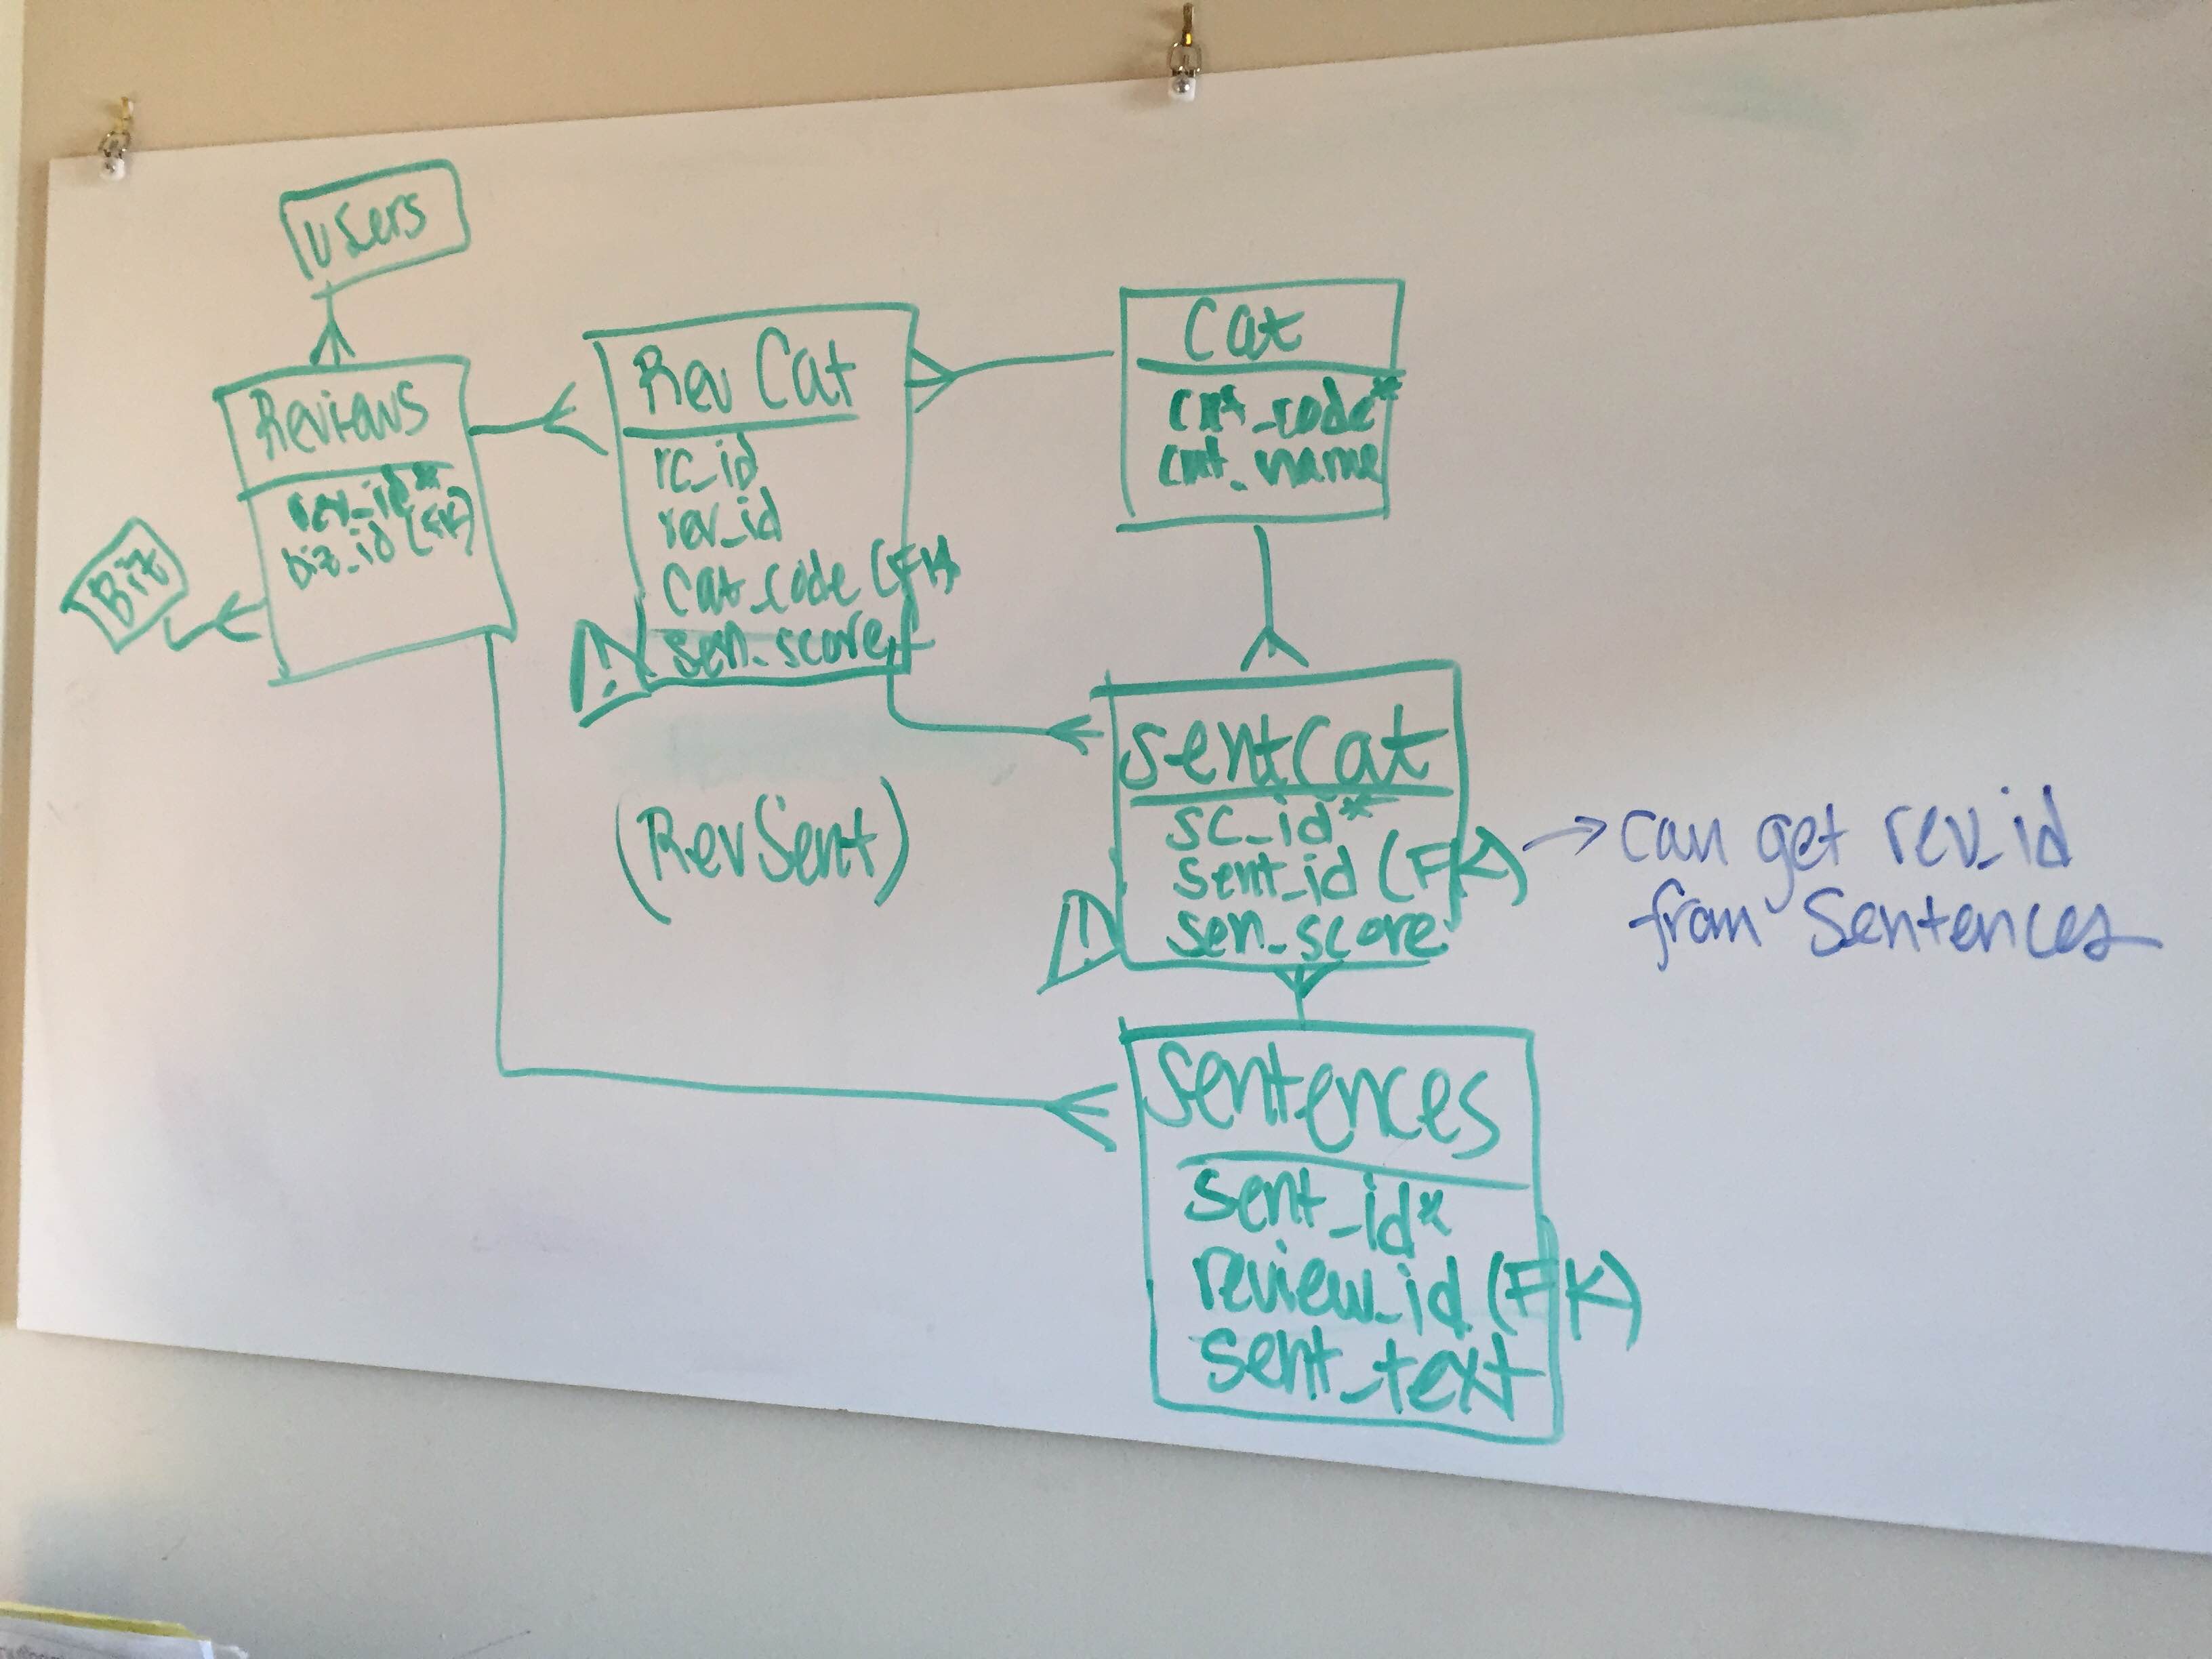 users
Reviews
rev_id*
biz_id (FK)
Biz
Rev Cat
rc_id
rev_id
cat_code (FK)
sen_score
Cat
cat_code*
cat_name
(RevSent)
SentCat
sc_id*
sent_id (FK)
sen_score
→ can get rev_id
from Sentences
Sentences
sent_id*
review_id (FK)
sent_text